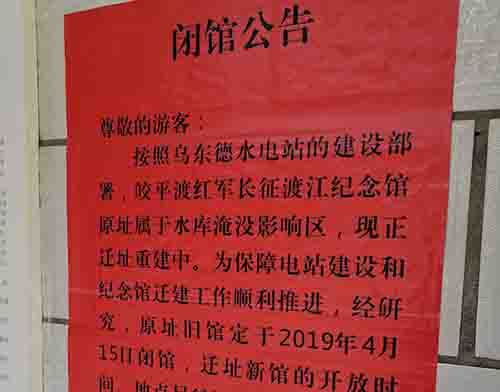 闭馆公告
尊敬的游客：
按照乌东德水电站的建设部
署，皎平渡红军长征渡江纪念馆
原址属于水库淹没影响区，现正
迁址重建中。为保障电站建设和
纪念馆迁建工作顺利推进，经研
究，原址旧馆定于2019年4月
15日闭馆，迁址新馆的开放时
间、地点